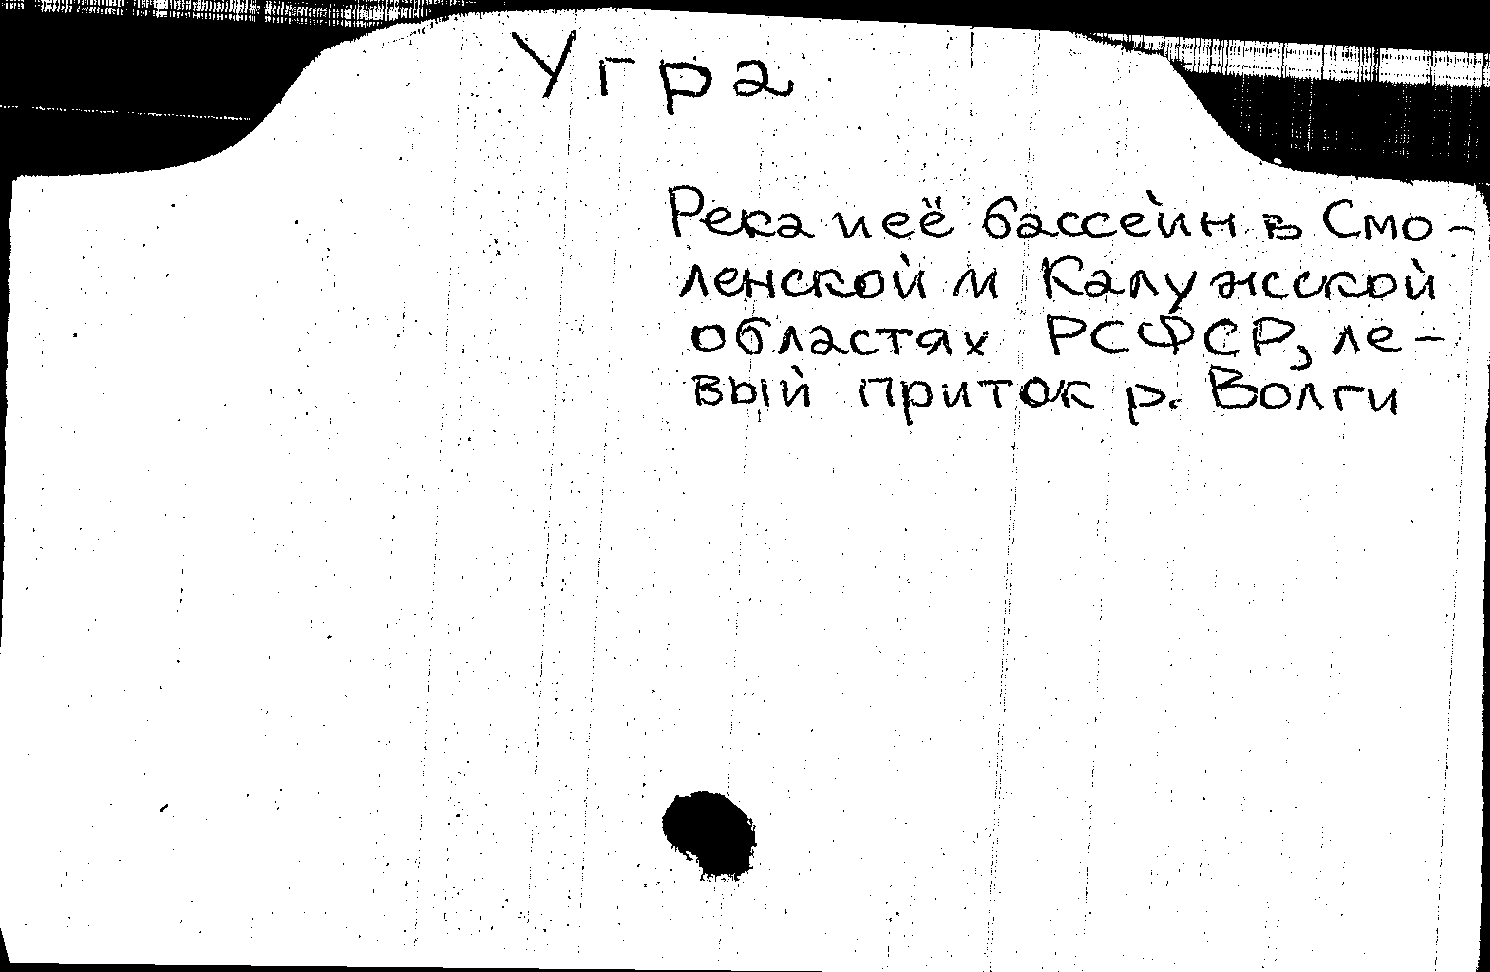 Угра
Река и её бассейн в Смо-
ленской и Калужской
областях РСФСР, ле-
вый приток р. Волги